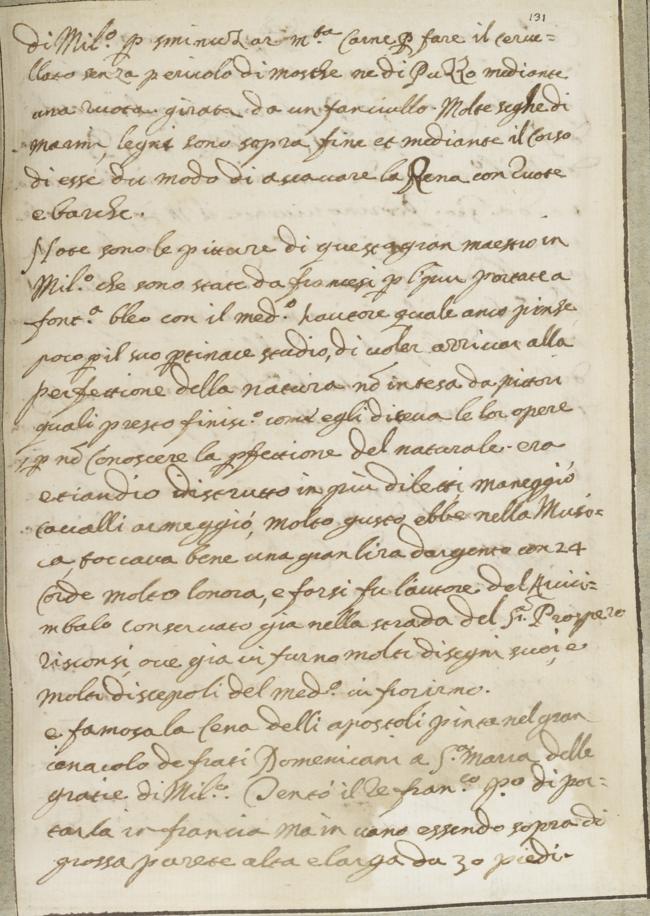 131
di Mil.o p sminuzar m.ta Carne p fare il Cerue=
llato senza pericolo di mosche ne di Puzzo mediante
una ruota girata da un fanciullo. Molte seghe di
marmi, legni sono sopra fine et mediante il Corso
di esse du modo di ascavare la Rena con ruote
e barche.
Note sono le pitture di questo gran maestro in
Mil.o che sono state da francesi p portate a
font.a bleo con il med.o hautore quale anco pinse
poco p il suo ptinace studio, di voler arrivar alla
perfettione della natura nō intesa da pittori
quali presto finisc.o come egli diceva le lor opere
p nō Conoscere la pfettione del naturale. era
etiandio istrutto in più diletti, maneggiò
cavalli armeggiò, molto gusto ebbe nella Musi=
ca toccava bene una gran lira dargento con 24
Corde molto sonora, e forsi fu l'autore del Arici=
mbalo conservato gia nella strada del S.r Prospero
Visconsi, ove gia vi furno molti disegni suoi, e
molti discepoli del med.o vi fiorirno.
e famosa la Cena delli apostoli pinta nel gran
cenacolo de frati Domenicani a S.a Maria delle
gratie di Mil.o. Tentò il Re fran.co p.o di por=
tarla in francia ma in vano essendo sopra di
grossa parete alta e larga da 30 piedi.